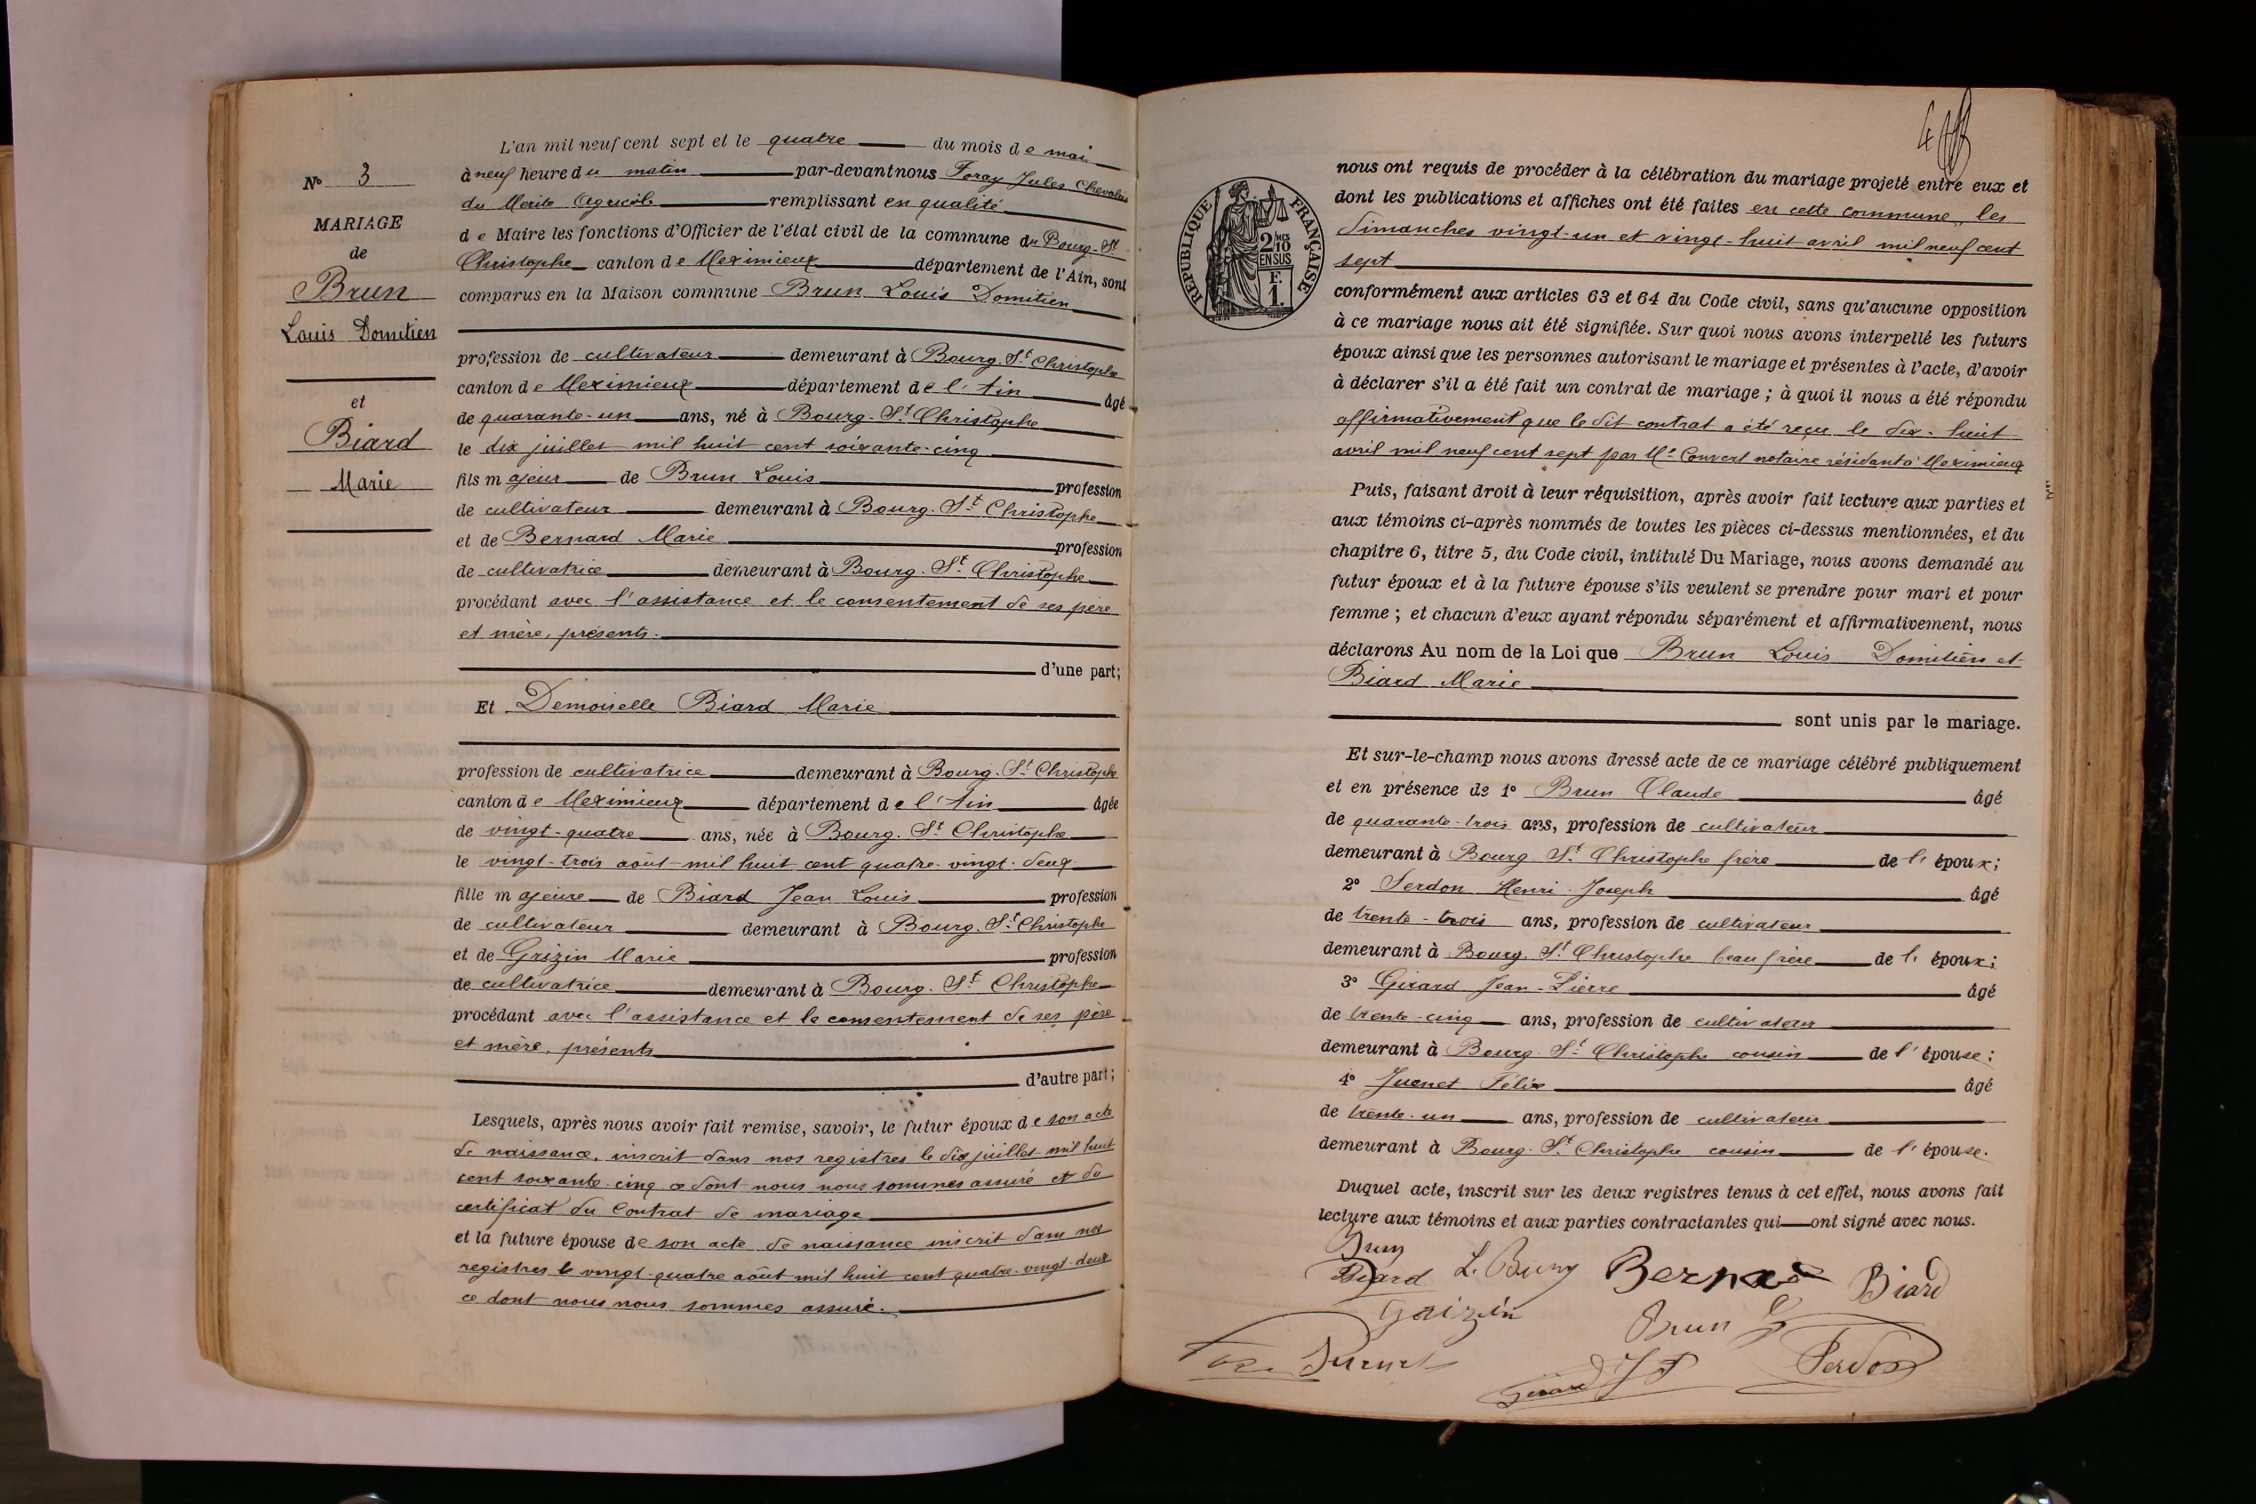 N° 3
MARIAGE
de
Brun
Louis Domitien
et
Biard
Marie
L'an mil neuf cent sept et le quatre du mois de mai
à neuf heure du matin par-devant nous Foray Jules Chevalier
du Mérite Agricole remplissant en qualité
de Maire les fonctions d'Officier de l'état civil de la commune du Bourg-St
Christophe canton de Meximieux département de l'Ain, sont
comparus en la Maison commune Brun Louis Domitien
profession de cultivateur demeurant à Bourg. St Christophe
canton de Meximieux département de l'Ain âgé
de quarante-un ans, né à Bourg-St Christophe
le dix juillet mil huit cent soixante-cinq
fils majeur de Brun Louis profession
de cultivateur demeurant à Bourg. St Christophe
et de Bernard Marie profession
de cultivatrice demeurant à Bourg. St Christophe
procédant avec l'assistance et le consentement de ses père
et mère, présents.
d'une part;
Et Demoiselle Biard Marie
profession de cultivatrice demeurant à Bourg. St Christophe
canton de Meximieux département de l'Ain âgée
de vingt-quatre ans, née à Bourg. St Christophe
le vingt-trois août mil huit cent quatre-vingt-deux
fille majeure de Biard Jean Louis profession
de cultivateur demeurant à Bourg. St Christophe
et de Grizin Marie profession
de cultivatrice demeurant à Bourg. St Christophe
procédant avec l'assistance et le consentement de ses père
et mère, présents
d'autre part;
Lesquels, après nous avoir fait remise, savoir, le futur époux de son acte
de naissance, inscrit dans nos registres le dix juillet mil huit
cent soixante-cinq ce dont nous nous sommes assuré et du
certificat du Contrat de mariage
et la future épouse de son acte de naissance inscrit dans nos
registres le vingt-quatre août mil huit cent quatre-vingt-deux
ce dont nous nous sommes assuré.
RÉPUBLIQUE FRANÇAISE
2/10 MES
EN SUS
F.
1.
nous ont requis de procéder à la célébration du mariage projeté entre eux et
dont les publications et affiches ont été faites en cette commune, les
dimanches vingt-un et vingt-huit avril mil neuf cent
sept
conformément aux articles 63 et 64 du Code civil, sans qu'aucune opposition
à ce mariage nous ait été signifiée. Sur quoi nous avons interpellé les futurs
époux ainsi que les personnes autorisant le mariage et présentes à l'acte, d'avoir
à déclarer s'il a été fait un contrat de mariage ; à quoi il nous a été répondu
affirmativement que le dit contrat a été reçu le dix-huit
avril mil neuf cent sept par Me Convert notaire résidant à Meximieux
Puis, faisant droit à leur réquisition, après avoir fait lecture aux parties et
aux témoins ci-après nommés de toutes les pièces ci-dessus mentionnées, et du
chapitre 6, titre 5, du Code civil, intitulé Du Mariage, nous avons demandé au
futur époux et à la future épouse s'ils veulent se prendre pour mari et pour
femme ; et chacun d'eux ayant répondu séparément et affirmativement, nous
déclarons Au nom de la Loi que Brun Louis Domitien et
Biard Marie
sont unis par le mariage.
Et sur-le-champ nous avons dressé acte de ce mariage célébré publiquement
et en présence de 1° Brun Claude âgé
de quarante-trois ans, profession de cultivateur
demeurant à Bourg St Christophe frère de l'époux;
2° Serdon Henri-Joseph âgé
de trente-trois ans, profession de cultivateur
demeurant à Bourg. St Christophe beau frère de l'époux;
3° Girard Jean-Pierre âgé
de trente-cinq ans, profession de cultivateur
demeurant à Bourg. St Christophe cousin de l'épouse;
4° Juenet Félix âgé
de trente-un ans, profession de cultivateur
demeurant à Bourg. St Christophe cousin de l'épouse.
Duquel acte, inscrit sur les deux registres tenus à cet effet, nous avons fait
lecture aux témoins et aux parties contractantes qui ont signé avec nous.
Brun
Biard L. Brun Biard
Grizin Brun
Girard JP Serdon